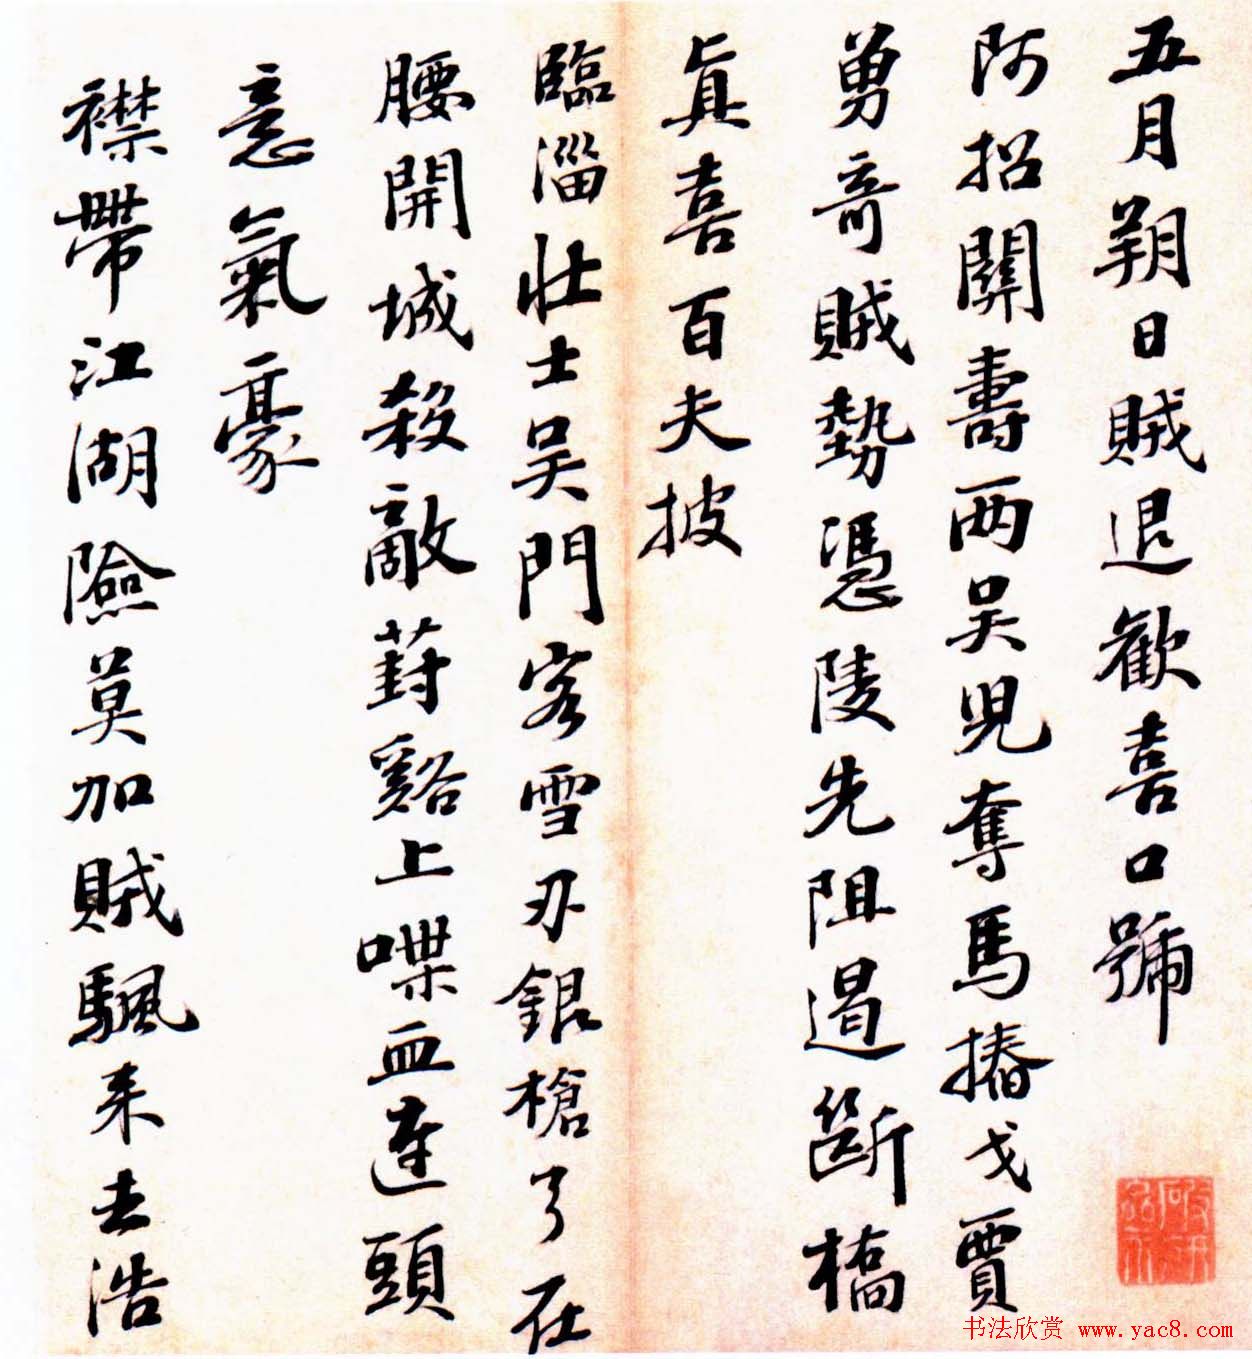 五月朔日賊退歡喜口號
阿招關壽兩吳兒奪馬摏戈賈
勇奇賊勢憑陵先阻遏斷橋
真喜百夫披
臨淄壯士吳門客雪刃銀槍了在
腰開城殺敵葑谿上喋血連頭
意氣豪
襟帶江湖險莫加賊颿來去浩
书法欣赏 www.yac8.com